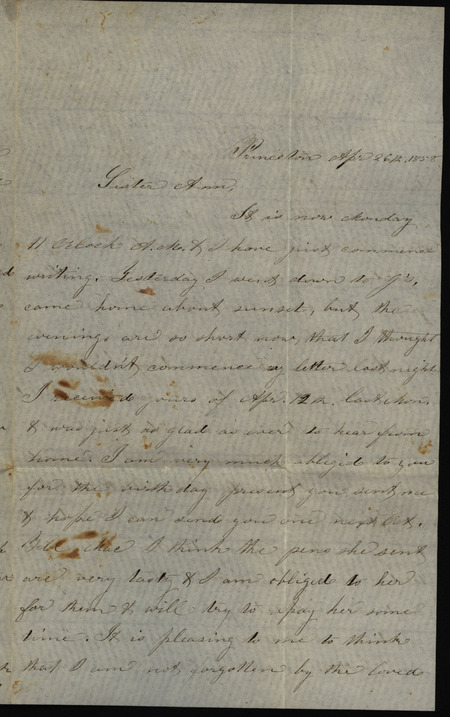 Princeton Apr 26th 1858
Sister Ann,
It is now Monday
11 Oclock A.M. & I have just commenced
writing. Yesterday I went down to
come home about sunset, but the
evenings are so short now, that I thought
I wouldn't commence my letter last night
I received yours of Apr. 12th. last Mon.
& was just as glad as ever to hear from
home. I am very much obliged to you
for the birth day present you sent me
& hope I can send you one next Oct.
I think the pens she sent
are very tasty & I am obliged to her
for them & will try to repay her some
time. It is pleasing to me to think
that I am not forgotten by the loved